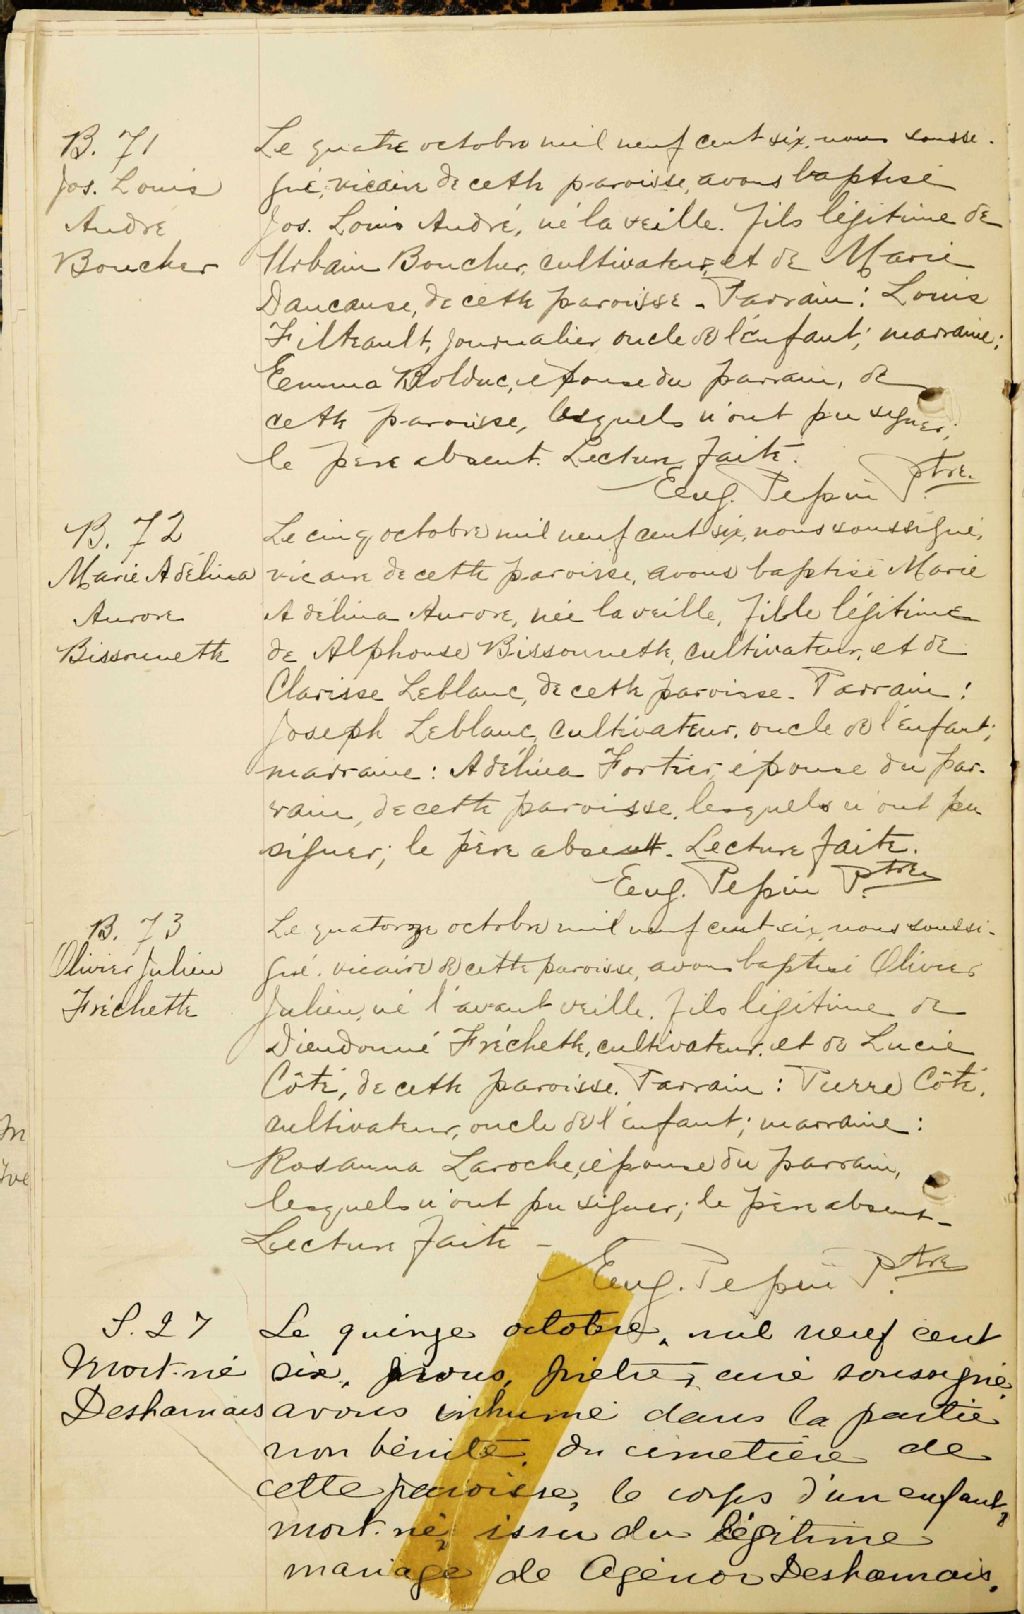 B. 71
Jos. Louis
André
Boucher
Le quatre octobre mil neuf cent six, nous sousse-
gné, vicaire de cette paroisse, avons baptisé
Jos. Louis André, né la veille. fils légitime de
Urbain Boucher, cultivateur, et de Marie
Dancause, de cette paroisse - Parrain: Louis
Filteault, journalier oncle de l'enfant; marraine:
Emma Bolduc, épouse du parrain, de
cette paroisse, lesquels n'ont pu signer;
le père absent. Lecture faite.
Eug. Pepin Ptre.
B. 72
Marie Adélina
Aurore
Bissonnette
Le cinq octobre mil neuf cent six, nous soussigné,
vicaire de cette paroisse, avons baptisé Marie
Adélina Aurore, née la veille, fille légitime
de Alphonse Bissonnette, cultivateur, et de
Clarisse Leblanc, de cette paroisse - Parrain:
Joseph Leblanc, cultivateur, oncle de l'enfant;
marraine: Adélina Fortier, épouse du par-
rain, de cette paroisse, lesquels n'ont pu
signer; le père absent. Lecture faite.
Eug. Pepin Ptre
B. 73
Olivier Julien
Fréchette
Le quatorze octobre mil neuf cent six, nous soussi-
gné, vicaire de cette paroisse, avons baptisé Olivier
Julien, né l'avant veille, fils légitime de
Dieudonné Fréchette, cultivateur, et de Lucie
Côté, de cette paroisse. Parrain: Pierre Côté,
cultivateur, oncle de l'enfant; marraine:
Rosanna Laroche, épouse du parrain,
lesquels n'ont pu signer; le père absent -
Lecture faite -
Eug. Pepin Ptre
S. 27
Mort-né
Desharnais
Le quinze octobre, mil neuf cent
six, nous, prêtre, curé soussigné
avons inhumé dans la partie
non bénite, du cimetière de
cette paroisse, le corps d'un enfant,
mort-né, issu du légitime
mariage de Agénor Desharnais.